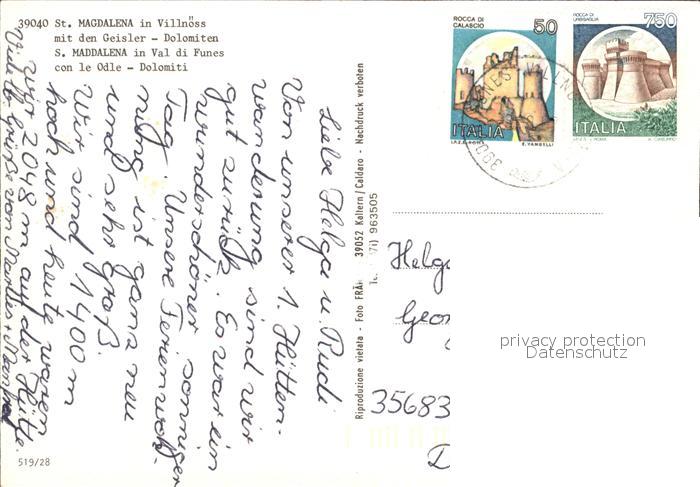 39040 St. MAGDALENA in Villnöss
mit den Geisler - Dolomiten
S. MADDALENA in Val di Funes
con le Odle - Dolomiti
Liebe Helga u. Rudi
Von unserer 1. Hütten-
wanderung sind wir
gut zurück. Es war ein
wunderschöner sonniger
Tag. Unsere Ferienwoh-
nung ist ganz neu
und sehr groß.
Wir sind 1400 m
hoch und heute waren
wir 2048 m auf der Hütte.
Viele Grüße von Marlies + Manfred
519/28
Riproduzione vietata - Foto 39052 Kaltern/Caldaro - Nachdruck verboten
963505
ROCCA DI
CALASCIO
50
ITALIA
I.P.Z.S. ROMA
E. VANGELLI
ROCCA DI
URBISAGLIA
750
ITALIA
I.P.Z.S. ROMA
Helga
Geor
35683
D
privacy protection
Datenschutz